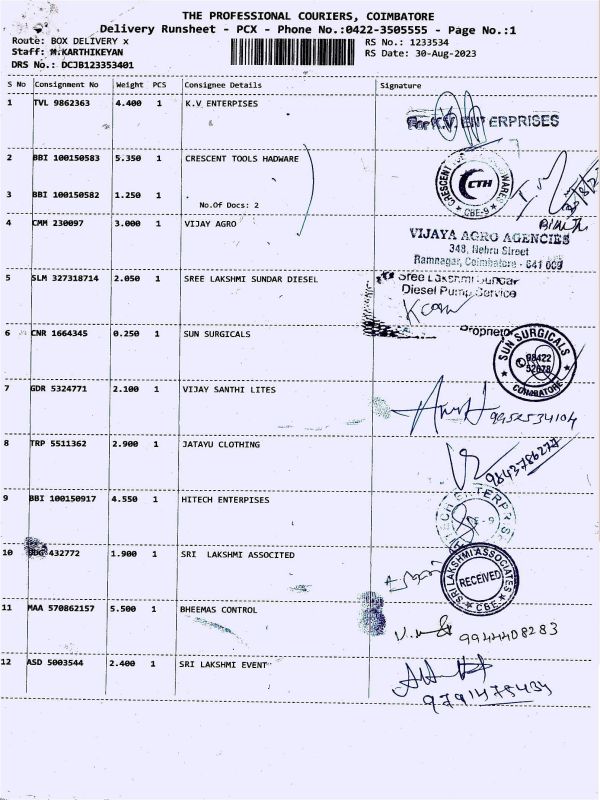 THE PROFESSIONAL COURIERS, COIMBATORE
Delivery Runsheet - PCX - Phone No.:0422-3505555 - Page No.:1
Route: BOX DELIVERY x RS No.: 1233534
Staff: M.KARTHIKEYAN RS Date: 30-Aug-2023
DRS No.: DCJB123353401
S No Consignment No Weight PCS Consignee Details Signature
1 TVL 9862363 4.400 1 K.V ENTERPISES
For K.V. ENTERPRISES
2 BBI 100150583 5.350 1 CRESCENT TOOLS HADWARE
CTH
CBE-9
3 BBI 100150582 1.250 1 No.Of Docs: 2
4 CMM 230097 3.000 1 VIJAY AGRO
VIJAYA AGRO AGENCIES
348, Nehru Street
Ramnagar, Coimbatore - 641 009
5 SLM 327318714 2.050 1 SREE LAKSHMI SUNDAR DIESEL
Sree Lakshmi Sundar
Diesel Pump Service
Proprietor
6 CNR 1664345 0.250 1 SUN SURGICALS
SUN SURGICALS
98422
52678
COIMBATORE
7 GDR 5324771 2.100 1 VIJAY SANTHI LITES
9952534104
8 TRP 5511362 2.900 1 JATAYU CLOTHING
9843786277
9 BBI 100150917 4.550 1 HITECH ENTERPISES
10 432772 1.900 1 SRI LAKSHMI ASSOCITED
SRI LAKSHMI ASSOCIATES
RECEIVED
CBE
11 MAA 570862157 5.500 1 BHEEMAS CONTROL
9944408283
12 ASD 5003544 2.400 1 SRI LAKSHMI EVENT
9791475434